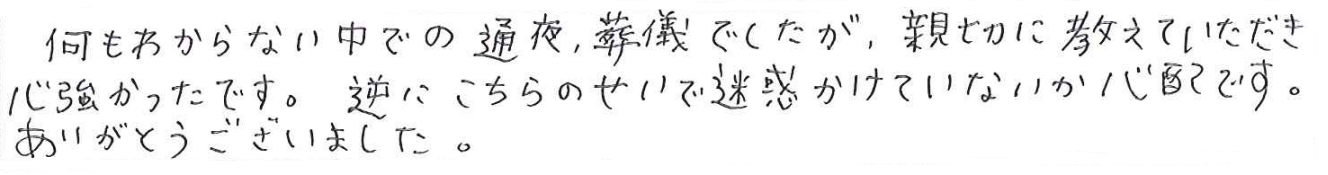 何もわからない中での通夜,葬儀でしたが,親切に教えていただき
心強かったです。 逆にこちらのせいで迷惑かけていないか心配です。
ありがとうございました。